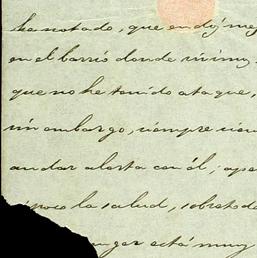 he notado, que en
en el barrio donde vivimos
que no he tenido ataque,
sin embargo, siempre
andar alerta con él;
poco la salud, sobretodo
está muy